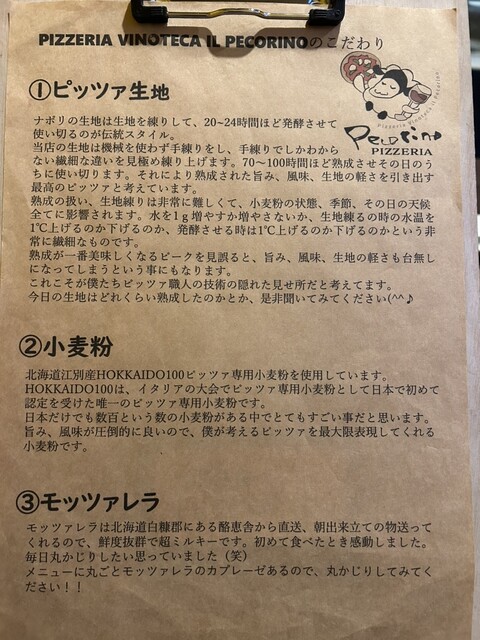 PIZZERIA VINOTECA IL PECORINOのこだわり
①ピッツァ生地
Pizzeria Vinoteca il Pecorino
Pecorino
PIZZERIA
ナポリの生地は生地を練りして、20~24時間ほど発酵させて
使い切るのが伝統スタイル。
当店の生地は機械を使わず手練りをし、手練りでしかわから
ない繊細な違いを見極め練り上げます。70～100時間ほど熟成させその日のう
ちに使い切ります。それにより熟成された旨み、風味、生地の軽さを引き出す
最高のピッツァと考えています。
熟成の扱い、生地練りは非常に難しくて、小麦粉の状態、季節、その日の天候
全てに影響されます。水を1ｇ増やすか増やさないか、生地練る時の水温を
1℃上げるのか下げるのか、発酵させる時は1℃上げるのか下げるのかという非
常に繊細なものです。
熟成が一番美味しくなるピークを見誤ると、旨み、風味、生地の軽さも台無し
になってしまうという事にもなります。
これこそが僕たちピッツァ職人の技術の隠れた見せ所だと考えてます。
今日の生地はどれくらい熟成したのかとか、是非聞いてみてください(^^♪
②小麦粉
北海道江別産HOKKAIDO100ピッツァ専用小麦粉を使用しています。
HOKKAIDO100は、イタリアの大会でピッツァ専用小麦粉として日本で初めて
認定を受けた唯一のピッツァ専用小麦粉です。
日本だけでも数百という数の小麦粉がある中でとてもすごい事だと思います。
旨み、風味が圧倒的に良いので、僕が考えるピッツァを最大限表現してくれる
小麦粉です。
③モッツァレラ
モッツァレラは北海道白糠郡にある酪恵舎から直送、朝出来立ての物送って
くれるので、鮮度抜群で超ミルキーです。初めて食べたとき感動しました。
毎日丸かじりしたい思っていました（笑）
メニューに丸ごとモッツァレラのカプレーゼあるので、丸かじりしてみてく
ださい！！